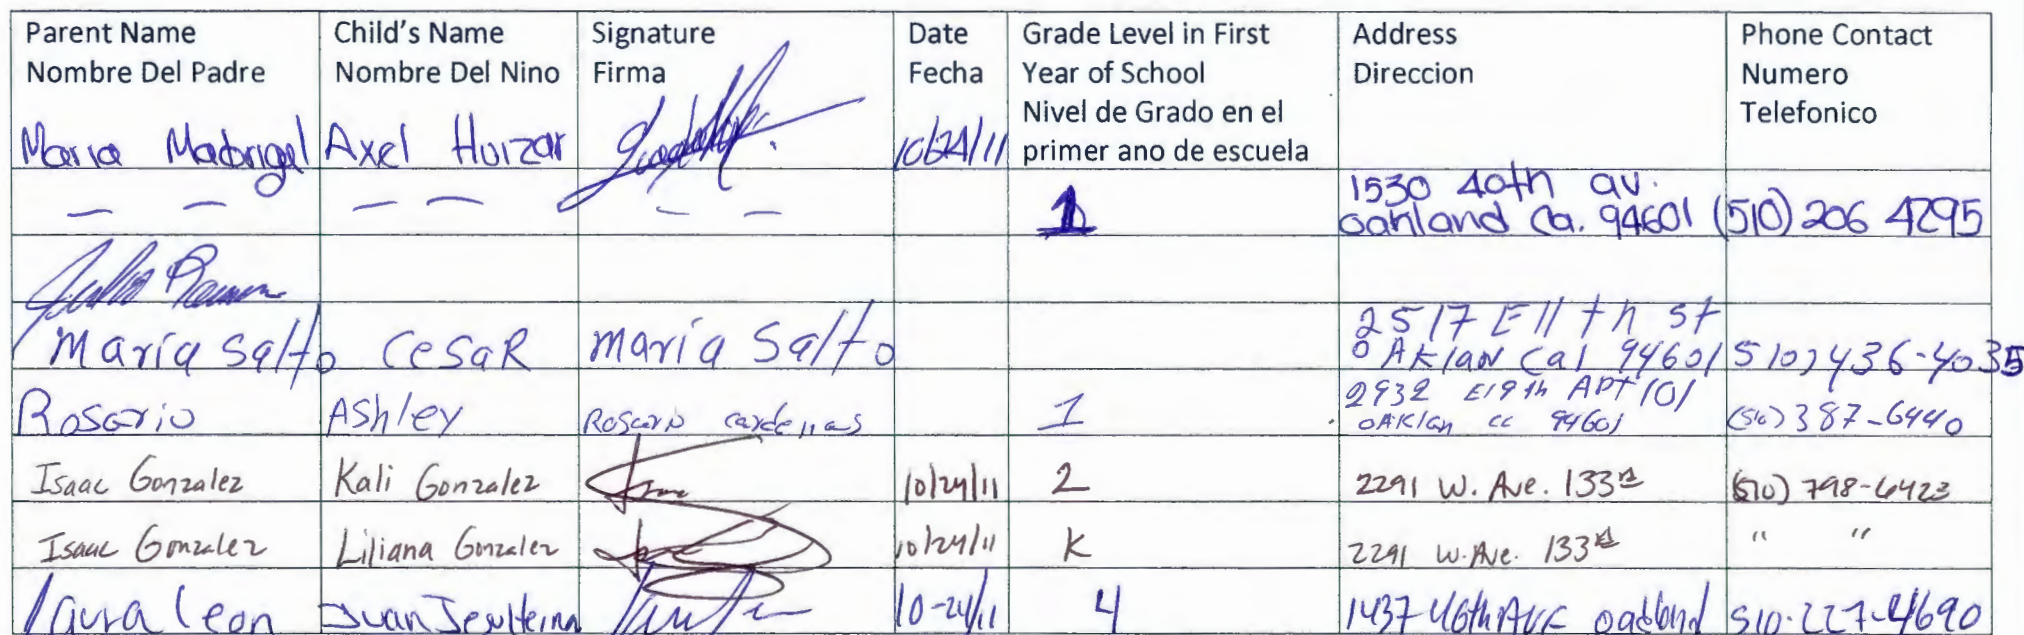 Parent Name
Nombre Del Padre
Child's Name
Nombre Del Nino
Signature
Firma
Date
Fecha
Grade Level in First
Year of School
Nivel de Grado en el
primer ano de escuela
Address
Direccion
Phone Contact
Numero
Telefonico
Maria Madrigal Axel Huizar 10/24/11
— — — — — — 1 1530 40th av.
oakland Ca. 94601 (510) 206 4295
María Salto CeSaR María Salto 2517 E11 th st
oAKlan Cal 94601 510) 436-4035
Rosario Ashley Rosario cardenas 1 2932 E19th APT 101
OAKlan cc 94601 (510) 387-6440
Isaac Gonzalez Kali Gonzalez 10/24/11 2 2291 W. Ave. 133rd (510) 798-6423
Isaac Gonzalez Liliana Gonzalez 10/24/11 K 2291 W. Ave. 133rd " "
Laura Leon Juan 10-24/11 4 1437 46th AVE oakland 510-227-4690